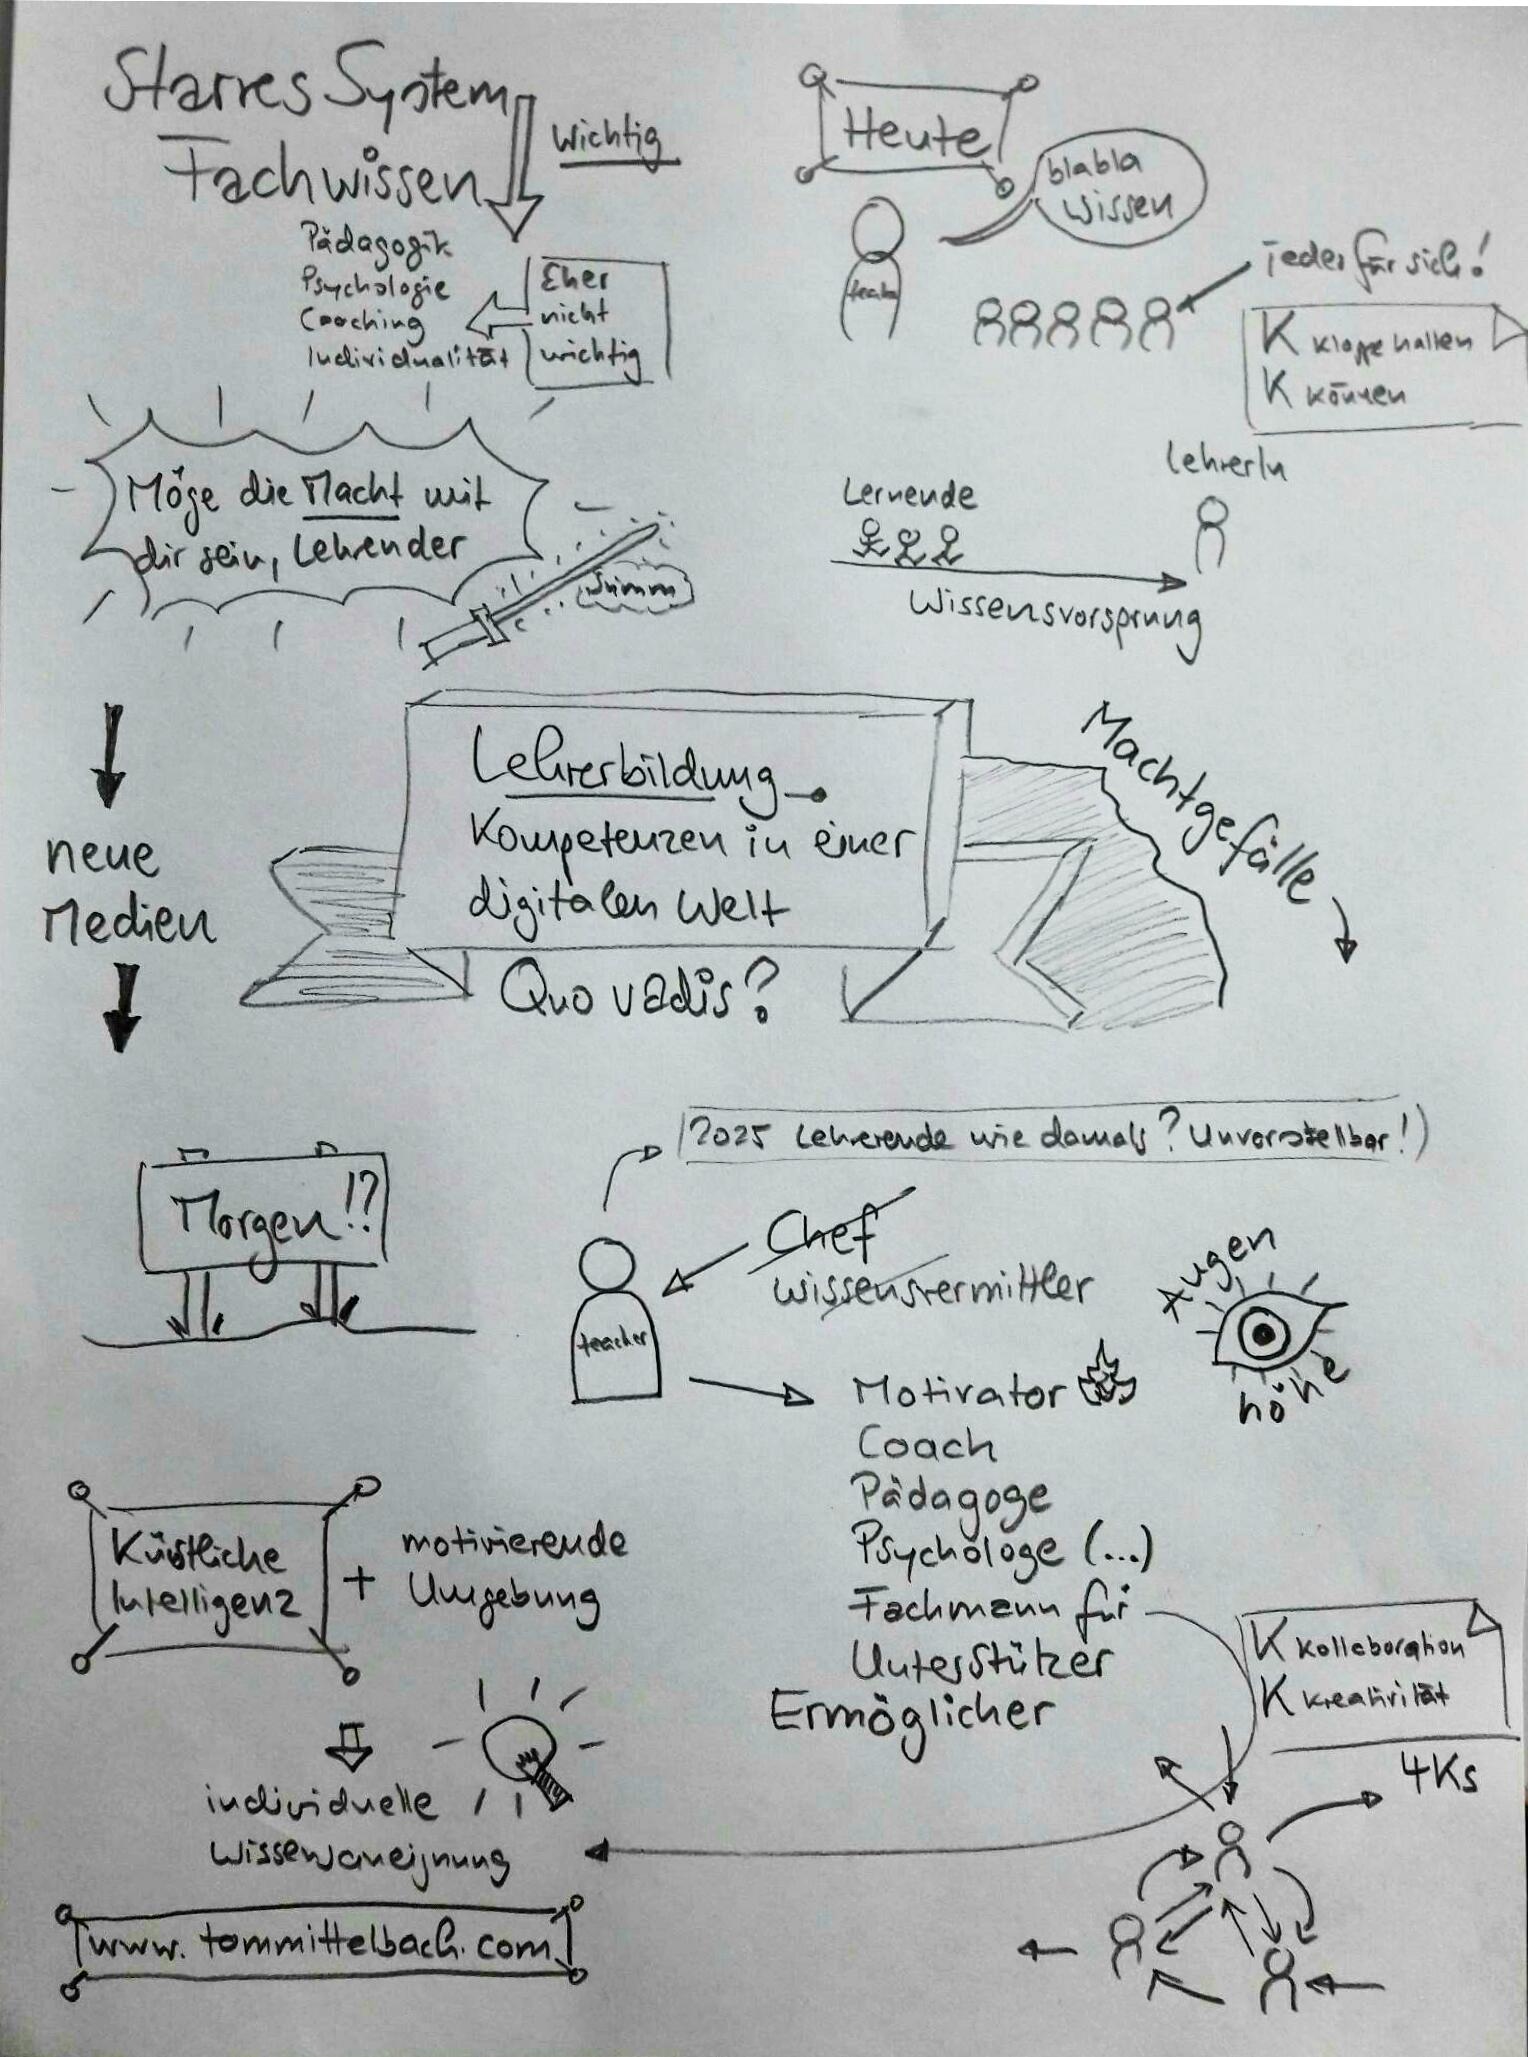 Starres System
Fachwissen
Wichtig
Pädagogik
Psychologie
Coaching
Individualität
Eher
nicht
wichtig
Heute
blabla
Wissen
jeder für sich!
K Klappe halten
K Können
Möge die Macht mit
dir sein, Lehrender
Summ
Lernende
LehrerIn
Wissensvorsprung
neue
Medien
Lehrerbildung
Kompetenzen in einer
digitalen Welt
Quo vadis?
Machtgefälle
2025 Lehrerende wie damals? Unvorstellbar!
Morgen!?
Chef
Wissensvermittler
teacher
Augen
höhe
Motivator
Coach
Pädagoge
Psychologe (...)
Fachmann für
Unterstützer
Ermöglicher
Künstliche
Intelligenz
+
motivierende
Umgebung
individuelle
Wissensaneignung
K Kollaboration
K Kreativität
4Ks
www.tommittelbach.com